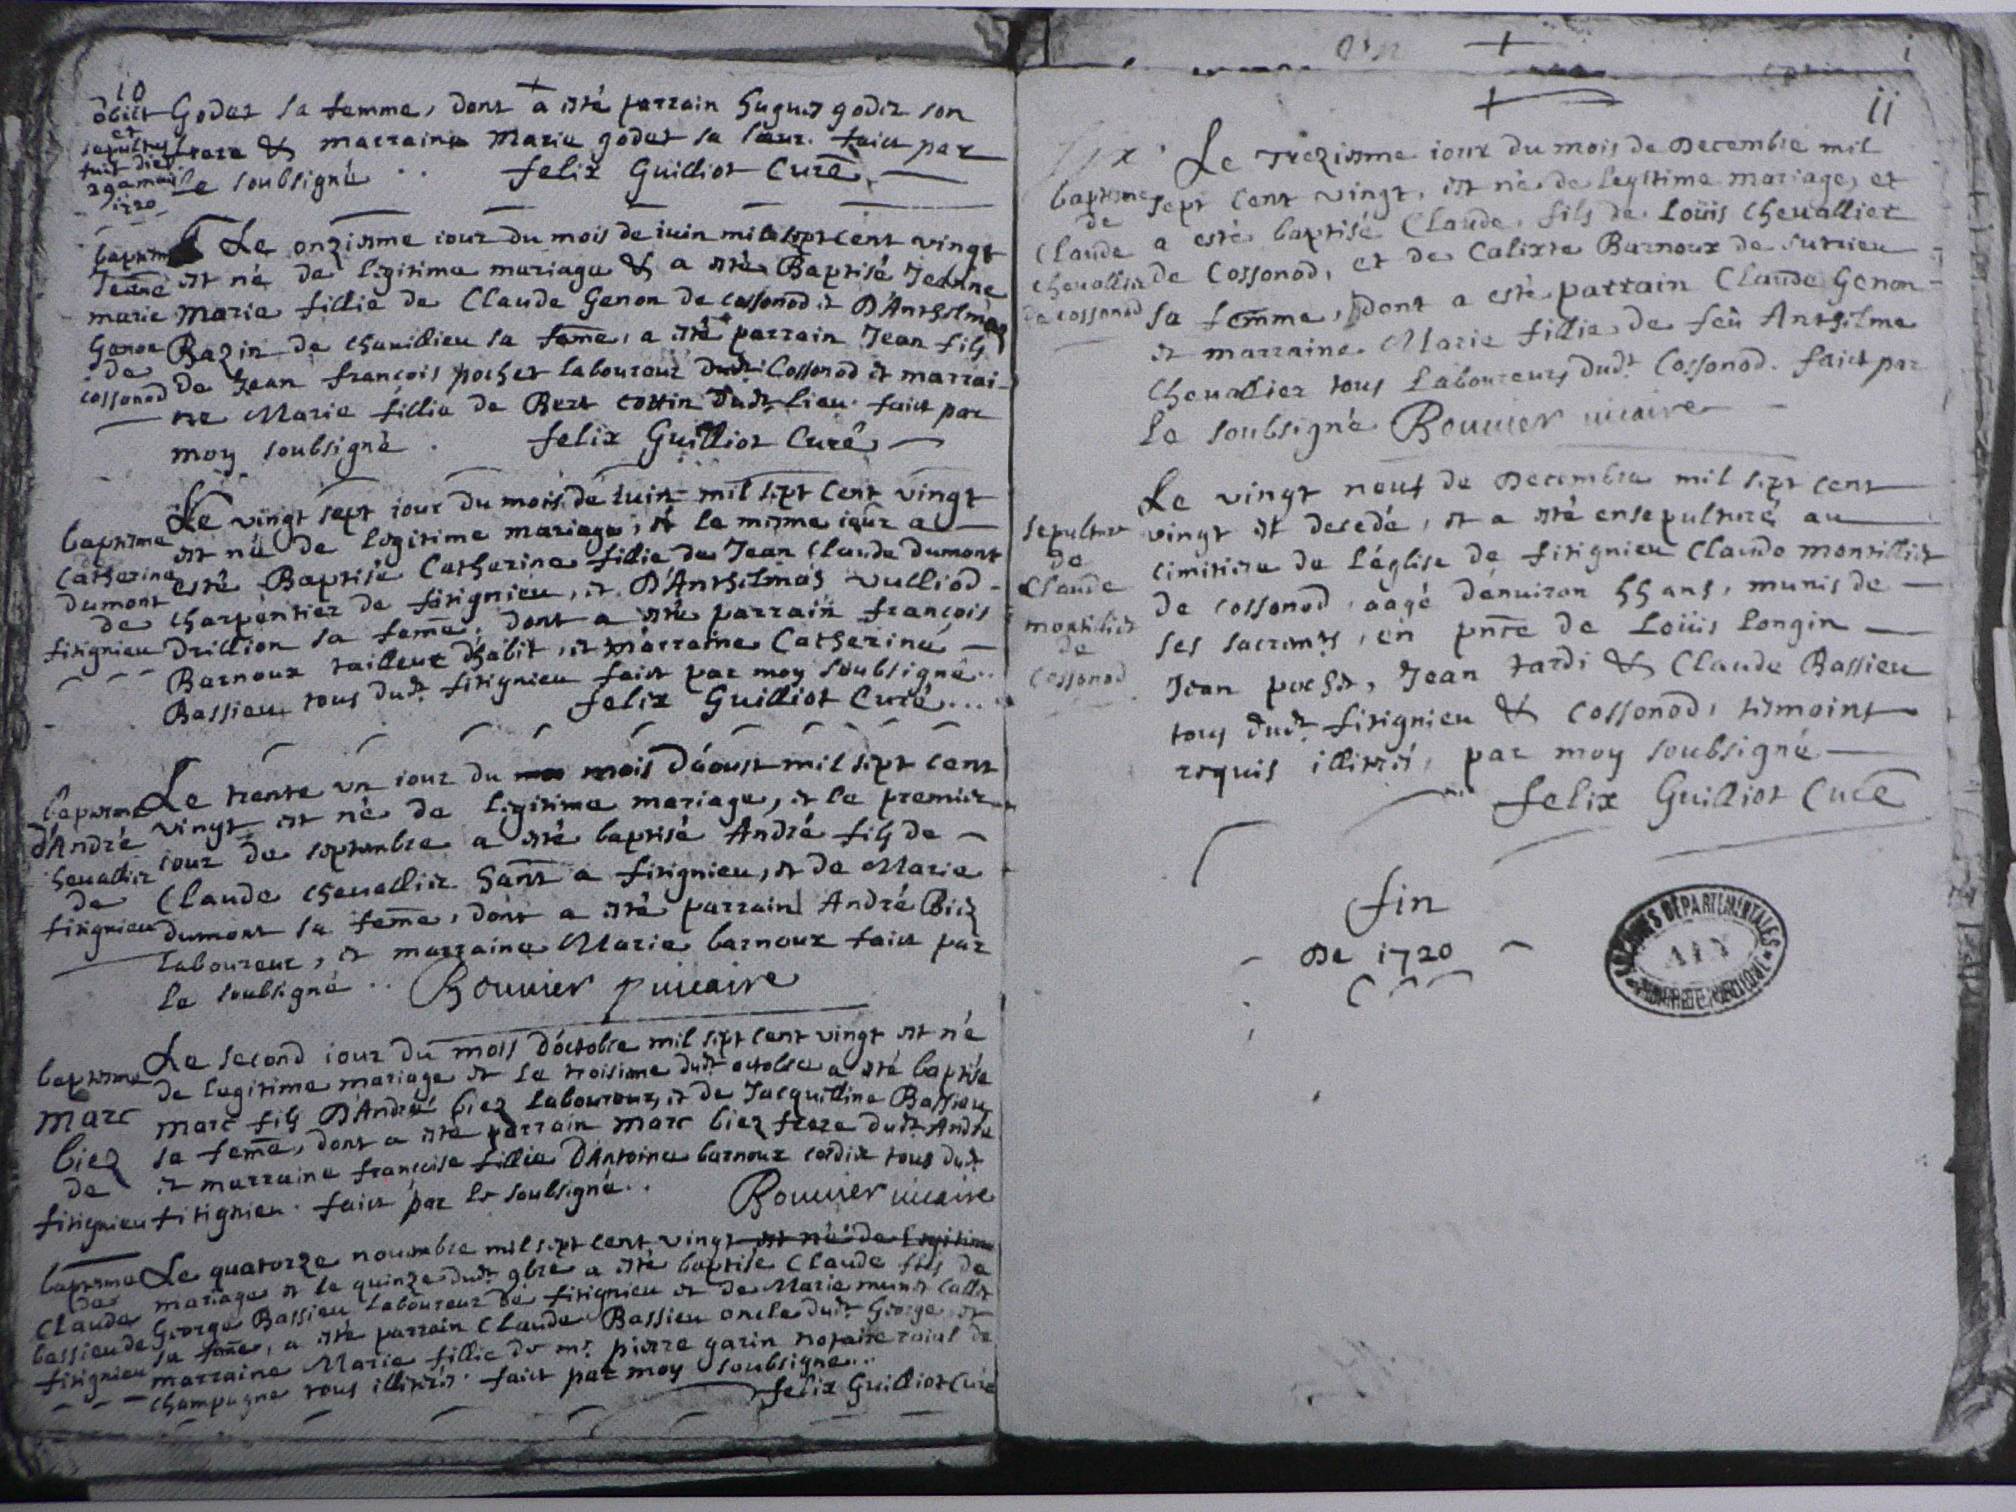 10
obiit
et
sepulture
fait die
29a maii
1720
Godet sa femme, dont a esté parrain hugues godet son
frere & marraine Marie godet sa sœur. faict par
le soubsigné .. felix Guilliot Curé
baptesme
Jeane
marie
Genon
de
cossonod
Le onziesme iour du mois de iuin mil sept cent vingt
est né de legitime mariage & a esté Baptisé Jeanne
Marie fillie de Claude Genon de cossonod et D'Anthelmaz
Bazin de chauillieu sa feme, a esté parrain Jean fils
de Jean françois pochet laboureur dudt Cossonod et marrai-
ne Marie fillie de Bert cottin dudt lieu. faict par
moy soubsigné . felix Guilliot Curé
baptesme
Catherine
dumont
de
fitignieu
Le vingt sept iour du mois de iuin mil sept cent vingt
est né de legitime mariage, et le mesme iour a
esté Baptisé Catherine fillie de Jean Claude dumont
charpentier de fitignieu, et D'Anthelmaz vulliod
Drillion sa feme, dont a esté parrain françois
Barnoux tailleur d'habit, et marraine Catherine
Bassieu tous dudt fitignieu faict par moy soubsigné..
felix Guilliot Curé...
baptesme
d'André
cheuallier
de
fitignieu
Le trente un iour du mois d'aoust mil sept cent
vingt est né de legitime mariage, et le premier
iour de septembre a esté baptisé André fils de
Claude cheuallier hant a fitignieu, et de Marie
dumont sa feme, dont a esté parrain André Biez
laboureur, et marraine Marie barnoux faict par
le soubsigné .. Bouuier vicaire
baptesme
Marc
biez
de
fitignieu
Le second iour du mois d'octobre mil sept cent vingt est né
de legitime mariage et le troisieme dudt octobre a esté baptisé
marc fils D'André biez Laboureur, et de Jacquilline Bassieu
sa feme, dont a esté parrain marc biez frere dudt André
et marraine françoise fillie D'Antoine barnoux cordier tous dudt
fitignieu. faict par le soubsigné.. Bouuier vicaire
baptesme
de
Claude
bassieu de
fitignieu
Le quatorze nouembre mil sept cent vingt est né de legitime
mariage et le quinze dudt 9bre a esté baptisé Claude fils de
George Bassieu Laboureur de fitignieu et de Marie munet callet
sa feme, a esté parrain Claude Bassieu oncle dudt George et
marraine Marie fillie de mr pierre garin notaire roial de
champagne tous illiterés. faict par moy soubsigné..
felix Guilliot Curé
11
baptesme
de
Claude
cheuallier
de cossonod
Le Treziesme iour du mois de Decembre mil
sept cent vingt, est né de legitime mariage, et
a esté baptisé Claude, fils de Loüis cheuallier
de Cossonod, et de Calixte Barnoux de sutrieu
sa femme, dont a esté parrain Claude Genon
et marraine Marie fillie de feü Anthelme
cheuallier tous Laboureurs dudt Cossonod. faict par
le soubsigné Bouuier vicaire
sepulture
de
Claude
montillier
de
Cossonod
Le vingt neuf de Decembre mil sept cent
vingt est desedé, et a esté ensepulturé au
cimitiere de l'église de fitignieu Claude montillier
de cossonod, aagé d'enuiron 55 ans, munis de
ses sacremts, en pnce de Loüis Longin
Jean pochet, Jean tardi & Claude Bassieu
tous dudt fitignieu & cossonod, tesmoins
requis illiterés, par moy soubsigné
felix Guilliot Curé
fin
De 1720
ARCHIVES DEPARTEMENTALES
AIN